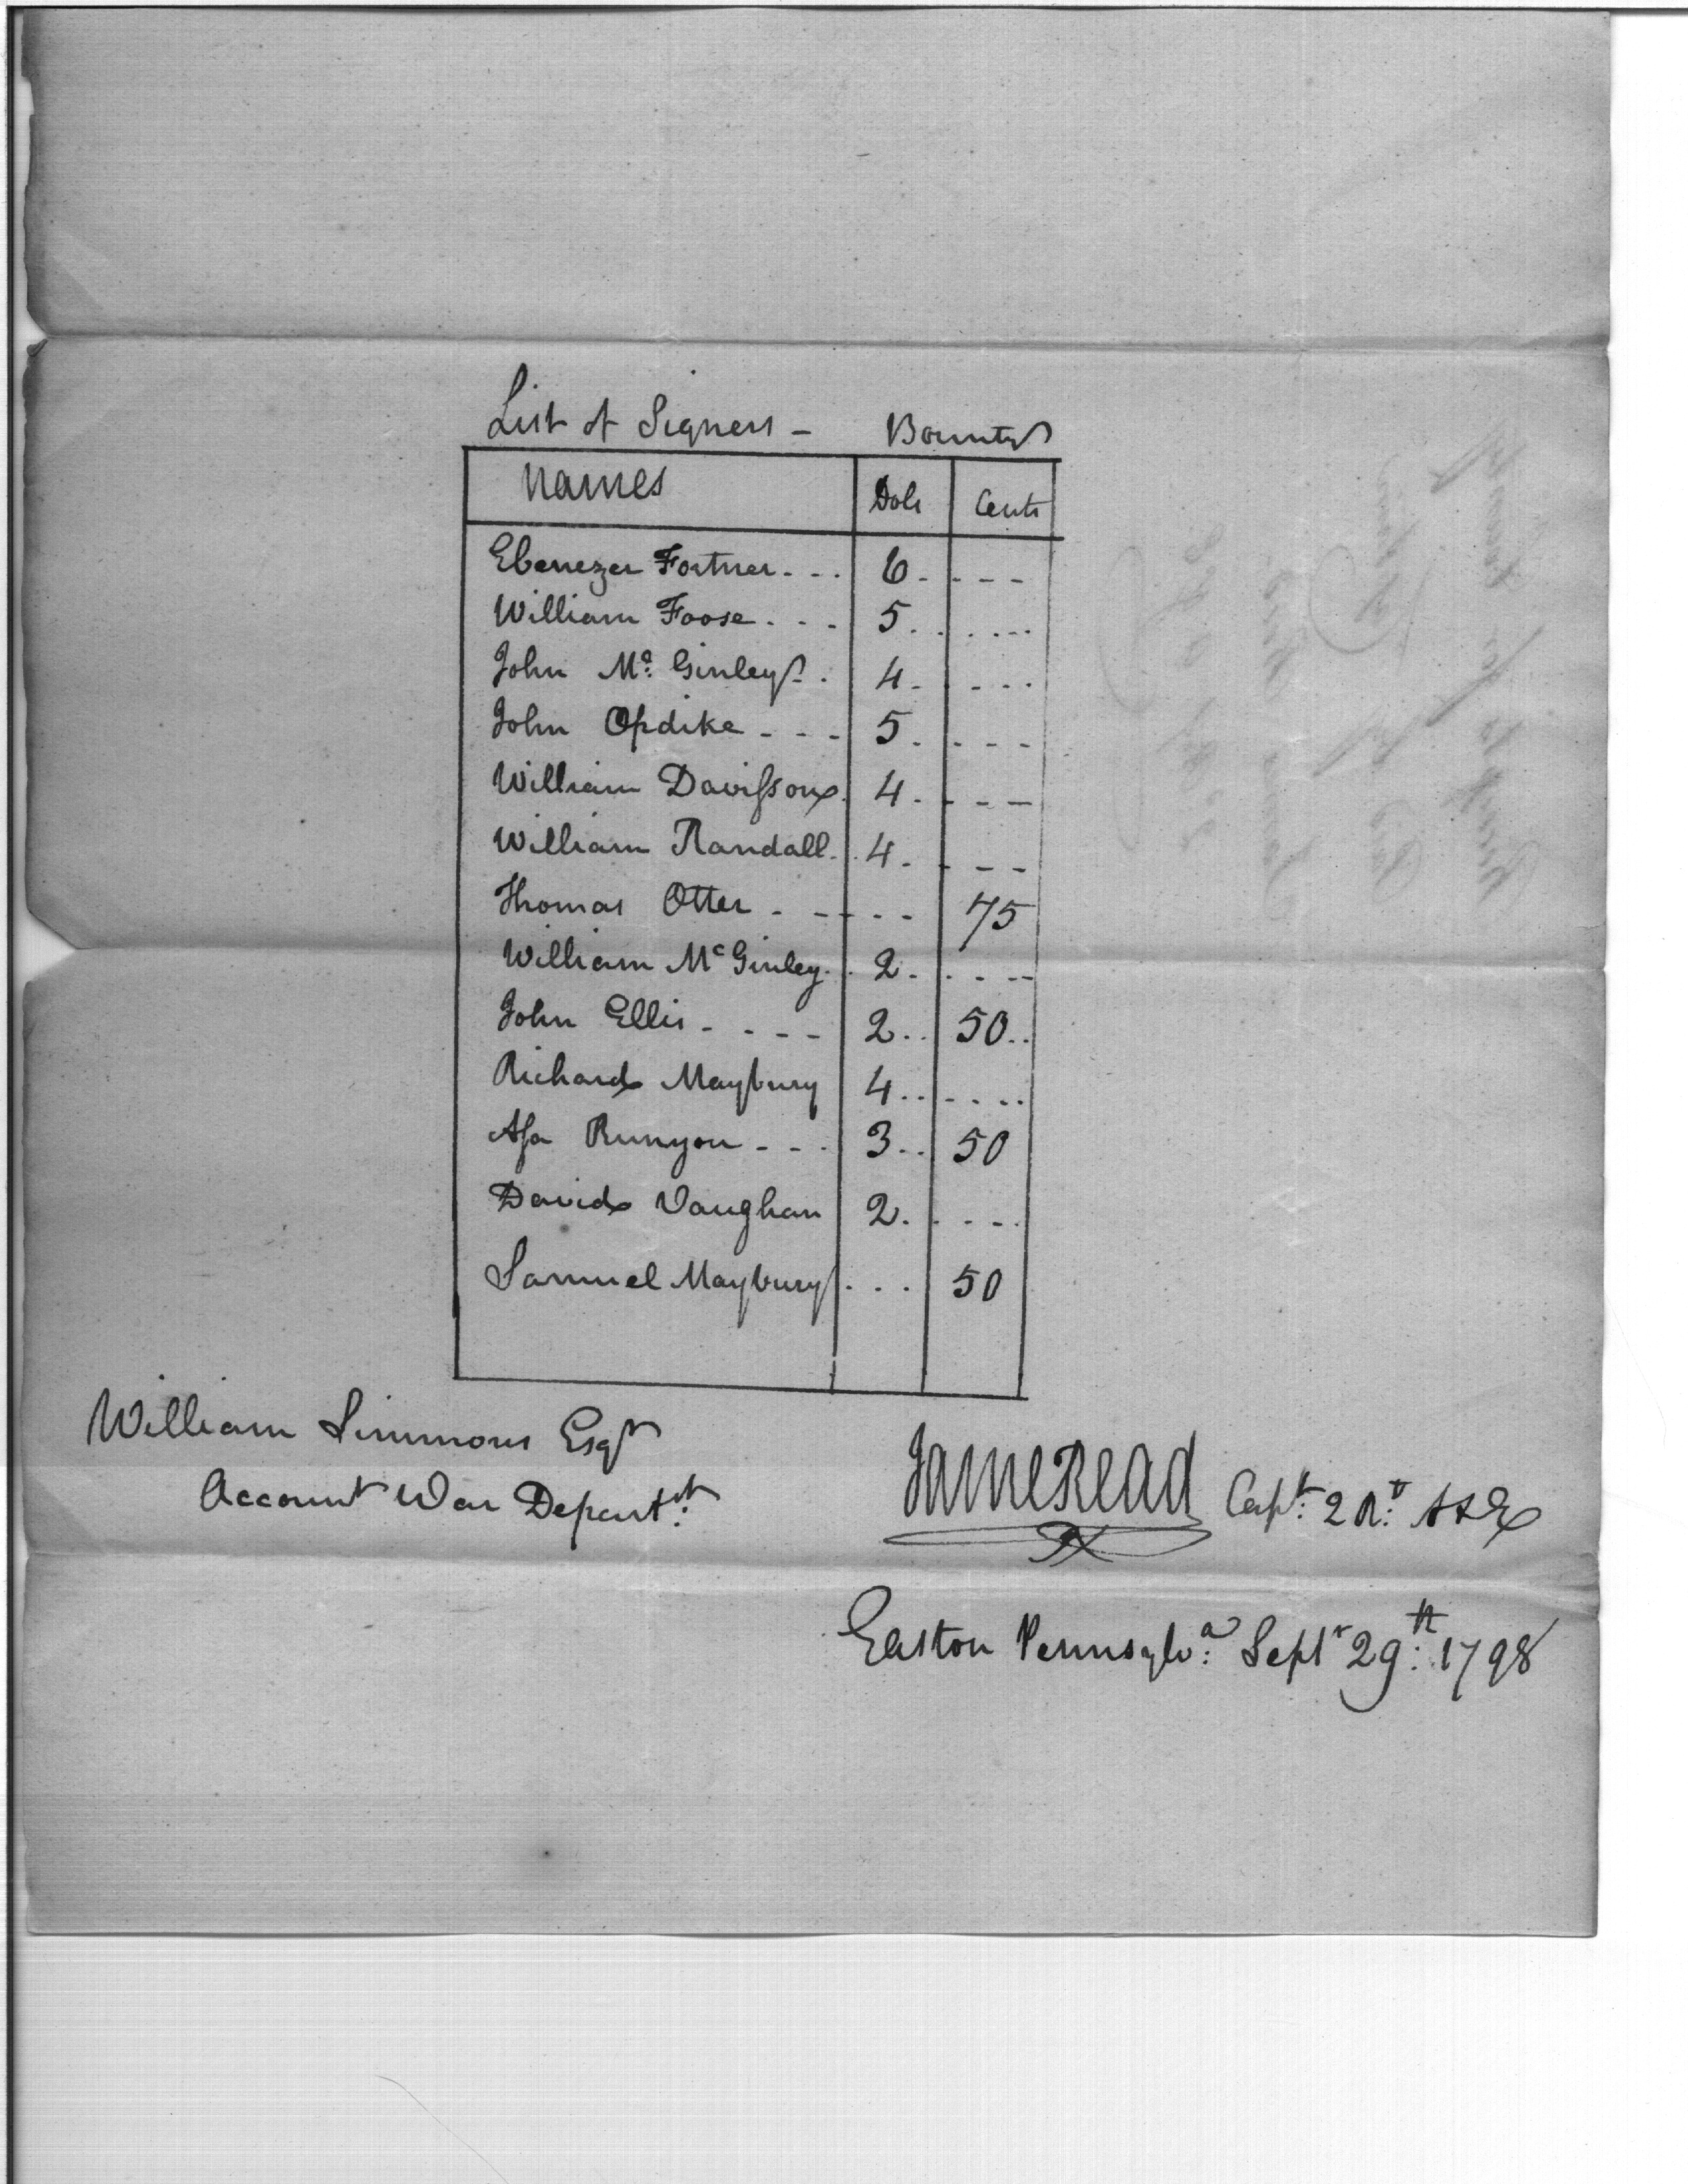 List of Signers - Bounty
Names Dols Cents
Ebenezer Fortner - - - 6 - - - -
William Foose - - - 5 - - - -
John Mc: Ginley - - 4 - - - -
John Opdike - - - 5 - - - -
William Davisson 4 - - - -
William Randall 4 - - - -
Thomas Otter - - - - - 75
William McGinley 2 - - - -
John Ellis - - - - 2 50
Richard Maybury 4 - - - -
Asa Runyon - - - 3 50
David Vaughan 2 - - - -
Samuel Maybury - - - 50
William Simmons Esqr
Account War Departt:
James Read Capt: 2 Rt:
Easton Pennsylva: Septr 29th: 1798